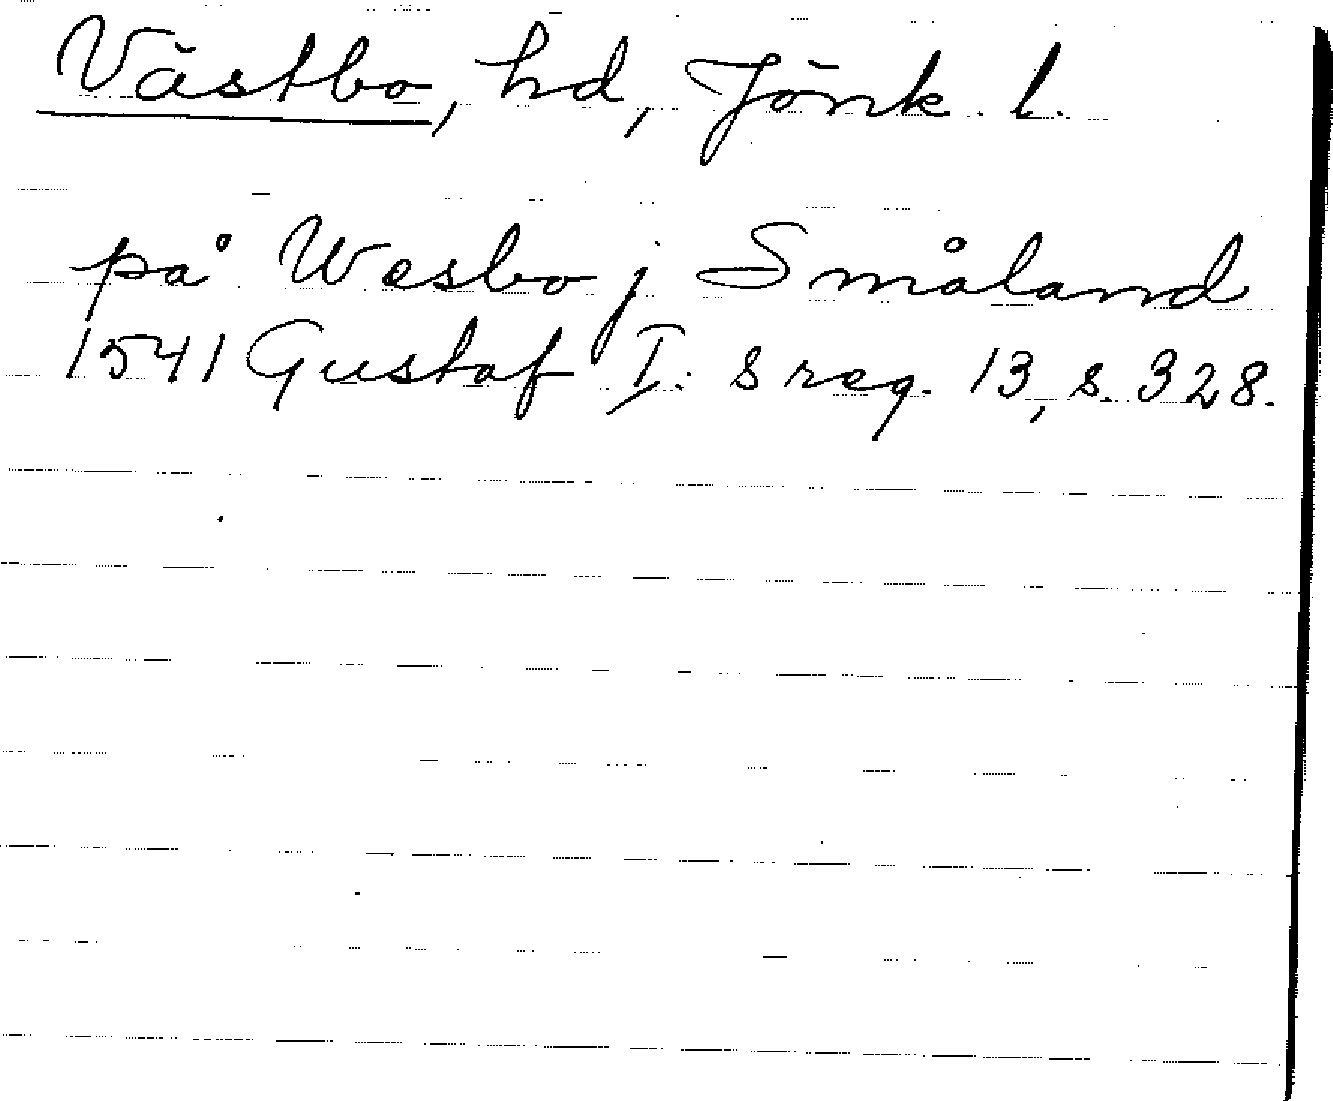 Västbo, hd, Jönk. l.
på Wesbo j Småland
1541 Gustaf I: s reg. 13, s. 328.